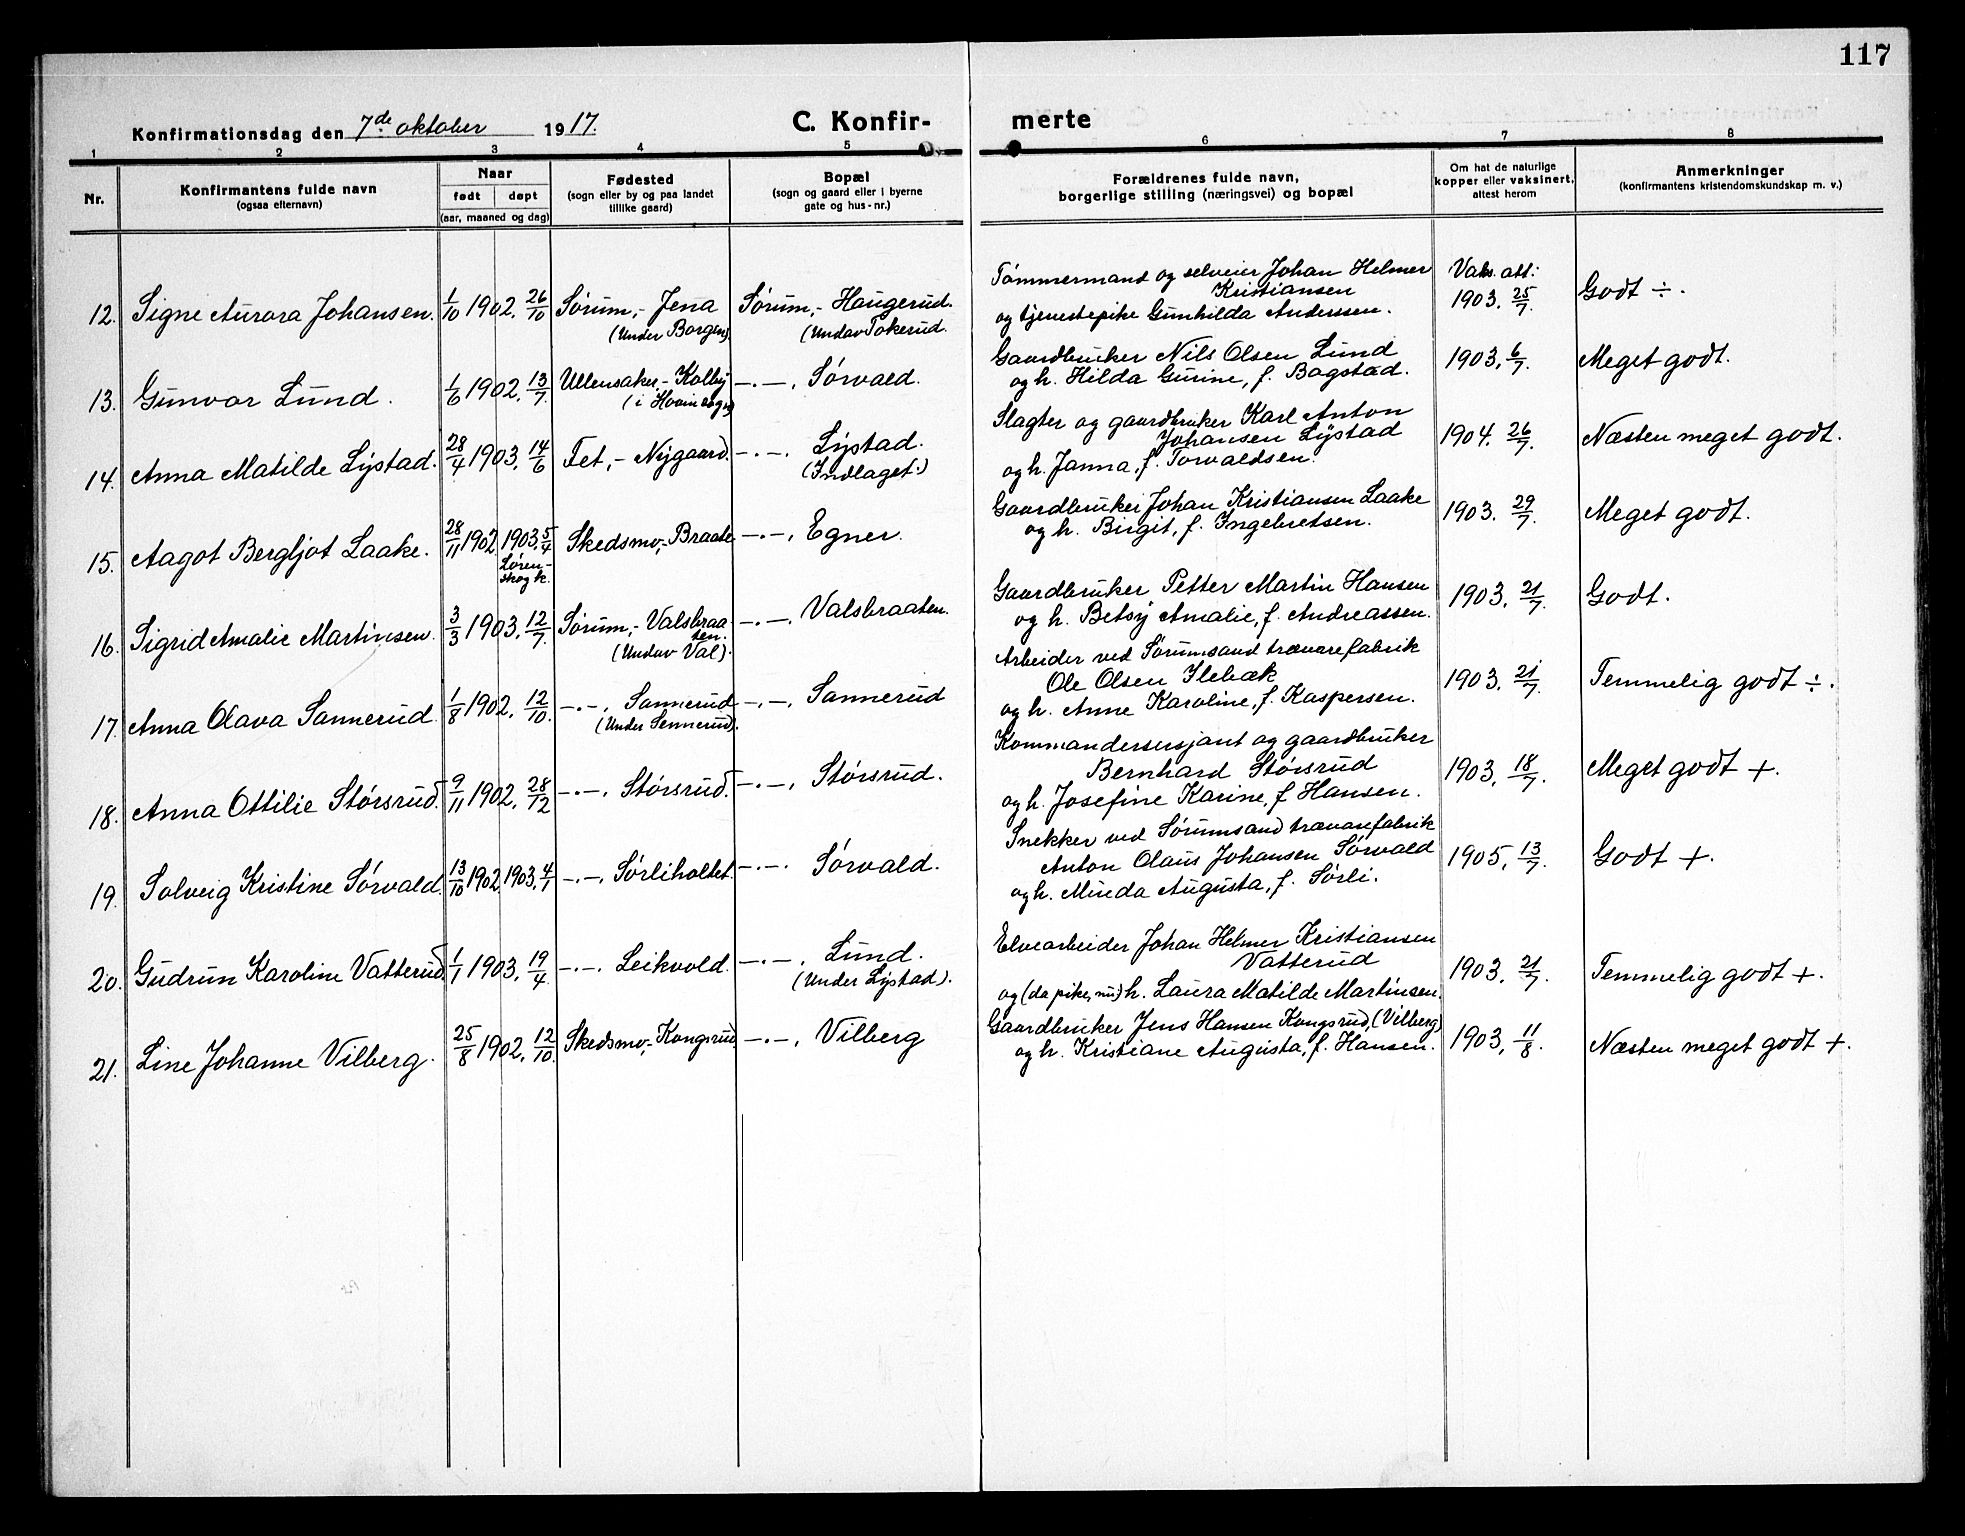 117
Konfirmationsdag den 7de oktober 1917.
C. Konfirmerte
1 2 3 4 5 6 7 8
Nr.
Konfirmantens fulde navn
(ogsaa efternavn)
Naar
født døpt
(aar, maaned og dag)
Fødested
(sogn eller by og paa landet
tillike gaard)
Bopæl
(sogn og gaard eller i byerne
gate og hus-nr.)
Forældrenes fulde navn,
borgerlige stilling (næringsvei) og bopæl
Om hat de naturlige
kopper eller vaksinert,
attest herom
Anmerkninger
(konfirmantens kristendomskundskap m. v.)
12. Signe Aurora Johansen. 1/10 1902. 26/10 Sørum,- Jena Sørum,- Haugerud.
(Under Borgen) (Undav Tokerud.
Tømmermand og selveier Johan Helmer
Kristiansen
og tjenestepike Gunhilda Anderssen.
Vaks. att:
1903. 25/7. Godt ÷.
13. Gunvor Lund. 1/6 1902. 13/7. Ullensaker,- Kolby -·-, Sørvald.
(i Hovin sogn)
Gaardbruker Nils Olsen Lund
og h. Hilda Gurine, f. Bogstad.
1903. 6/7. Meget godt.
14. Anna Matilde Lystad. 28/4 1903. 14/6 Fet,- Nygaard. -·-. Lystad.
(Indlaget.)
Slagter og gaardbruker Karl Anton
Johansen Lystad
og h. Janna, f. Torvaldsen.
1904. 26/7. Næsten meget godt.
15. Aagot Bergljot Laake. 28/11 1902 1903. 5/4 Skedsmo,- Braate -·-, Egner.
Løren-
skog k.
Gaardbruker Johan Kristiansen Laake
og h. Birgit, f. Ingebretsen.
1903. 29/7. Meget godt.
16. Sigrid Amalie Martinsen. 3/3 1903. 12/7. Sørum,- Valsbraa
ten.
(Undav Val). -·-, Valsbraaten.
Gaardbruker Petter Martin Hansen
og h. Betsy Amalie, f. Andreassen.
1903. 21/7. Godt.
17. Anna Olava Sannerud. 1/8 1902. 12/10. -·-, Sannerud -·-, Sannerud
(Under Sennerud).
Arbeider ved Sørumsand trævarefabrik
Ole Olsen Ilebæk
og h. Anne Karoline, f. Kaspersen.
1903. 21/7. Temmelig godt ÷.
18. Anna Ottilie Størsrud. 9/11 1902. 28/12 -·-, Størsrud. -·-, Størsrud.
Kommandersersjant og gaardbruker
Bernhard Størsrud
og h. Josefine Karine, f. Hansen.
1903. 18/7. Meget godt +.
19. Solveig Kristine Sørvald. 13/10 1902 1903. 4/1 -·-, Sørliholtet. -·-. Sørvald.
Snekker ved Sørumsand trævarefabrik
Anton Olaus Johansen Sørvald
og h. Minda Augusta, f. Sørli.
1905. 13/7. Godt +.
20. Gudrun Karoline Vatterud. 1/1 1903. 19/4 -·-. Leikvold. -·-, Lund.
(Under Lystad).
Elvearbeider Johan Helmer Kristiansen
Vatterud
og (da pike, nu) h. Laura Matilde Martinsen.
1903. 21/7. Temmelig godt +.
21. Line Johanne Vilberg. 25/8 1902. 12/10. Skedsmo,- Kongsrud -·-, Vilberg
Gaardbruker Jens Hansen Kongsrud, (Vilberg)
og h. Kristiane Augusta, f. Hansen.
1903. 11/8. Næsten meget godt +.